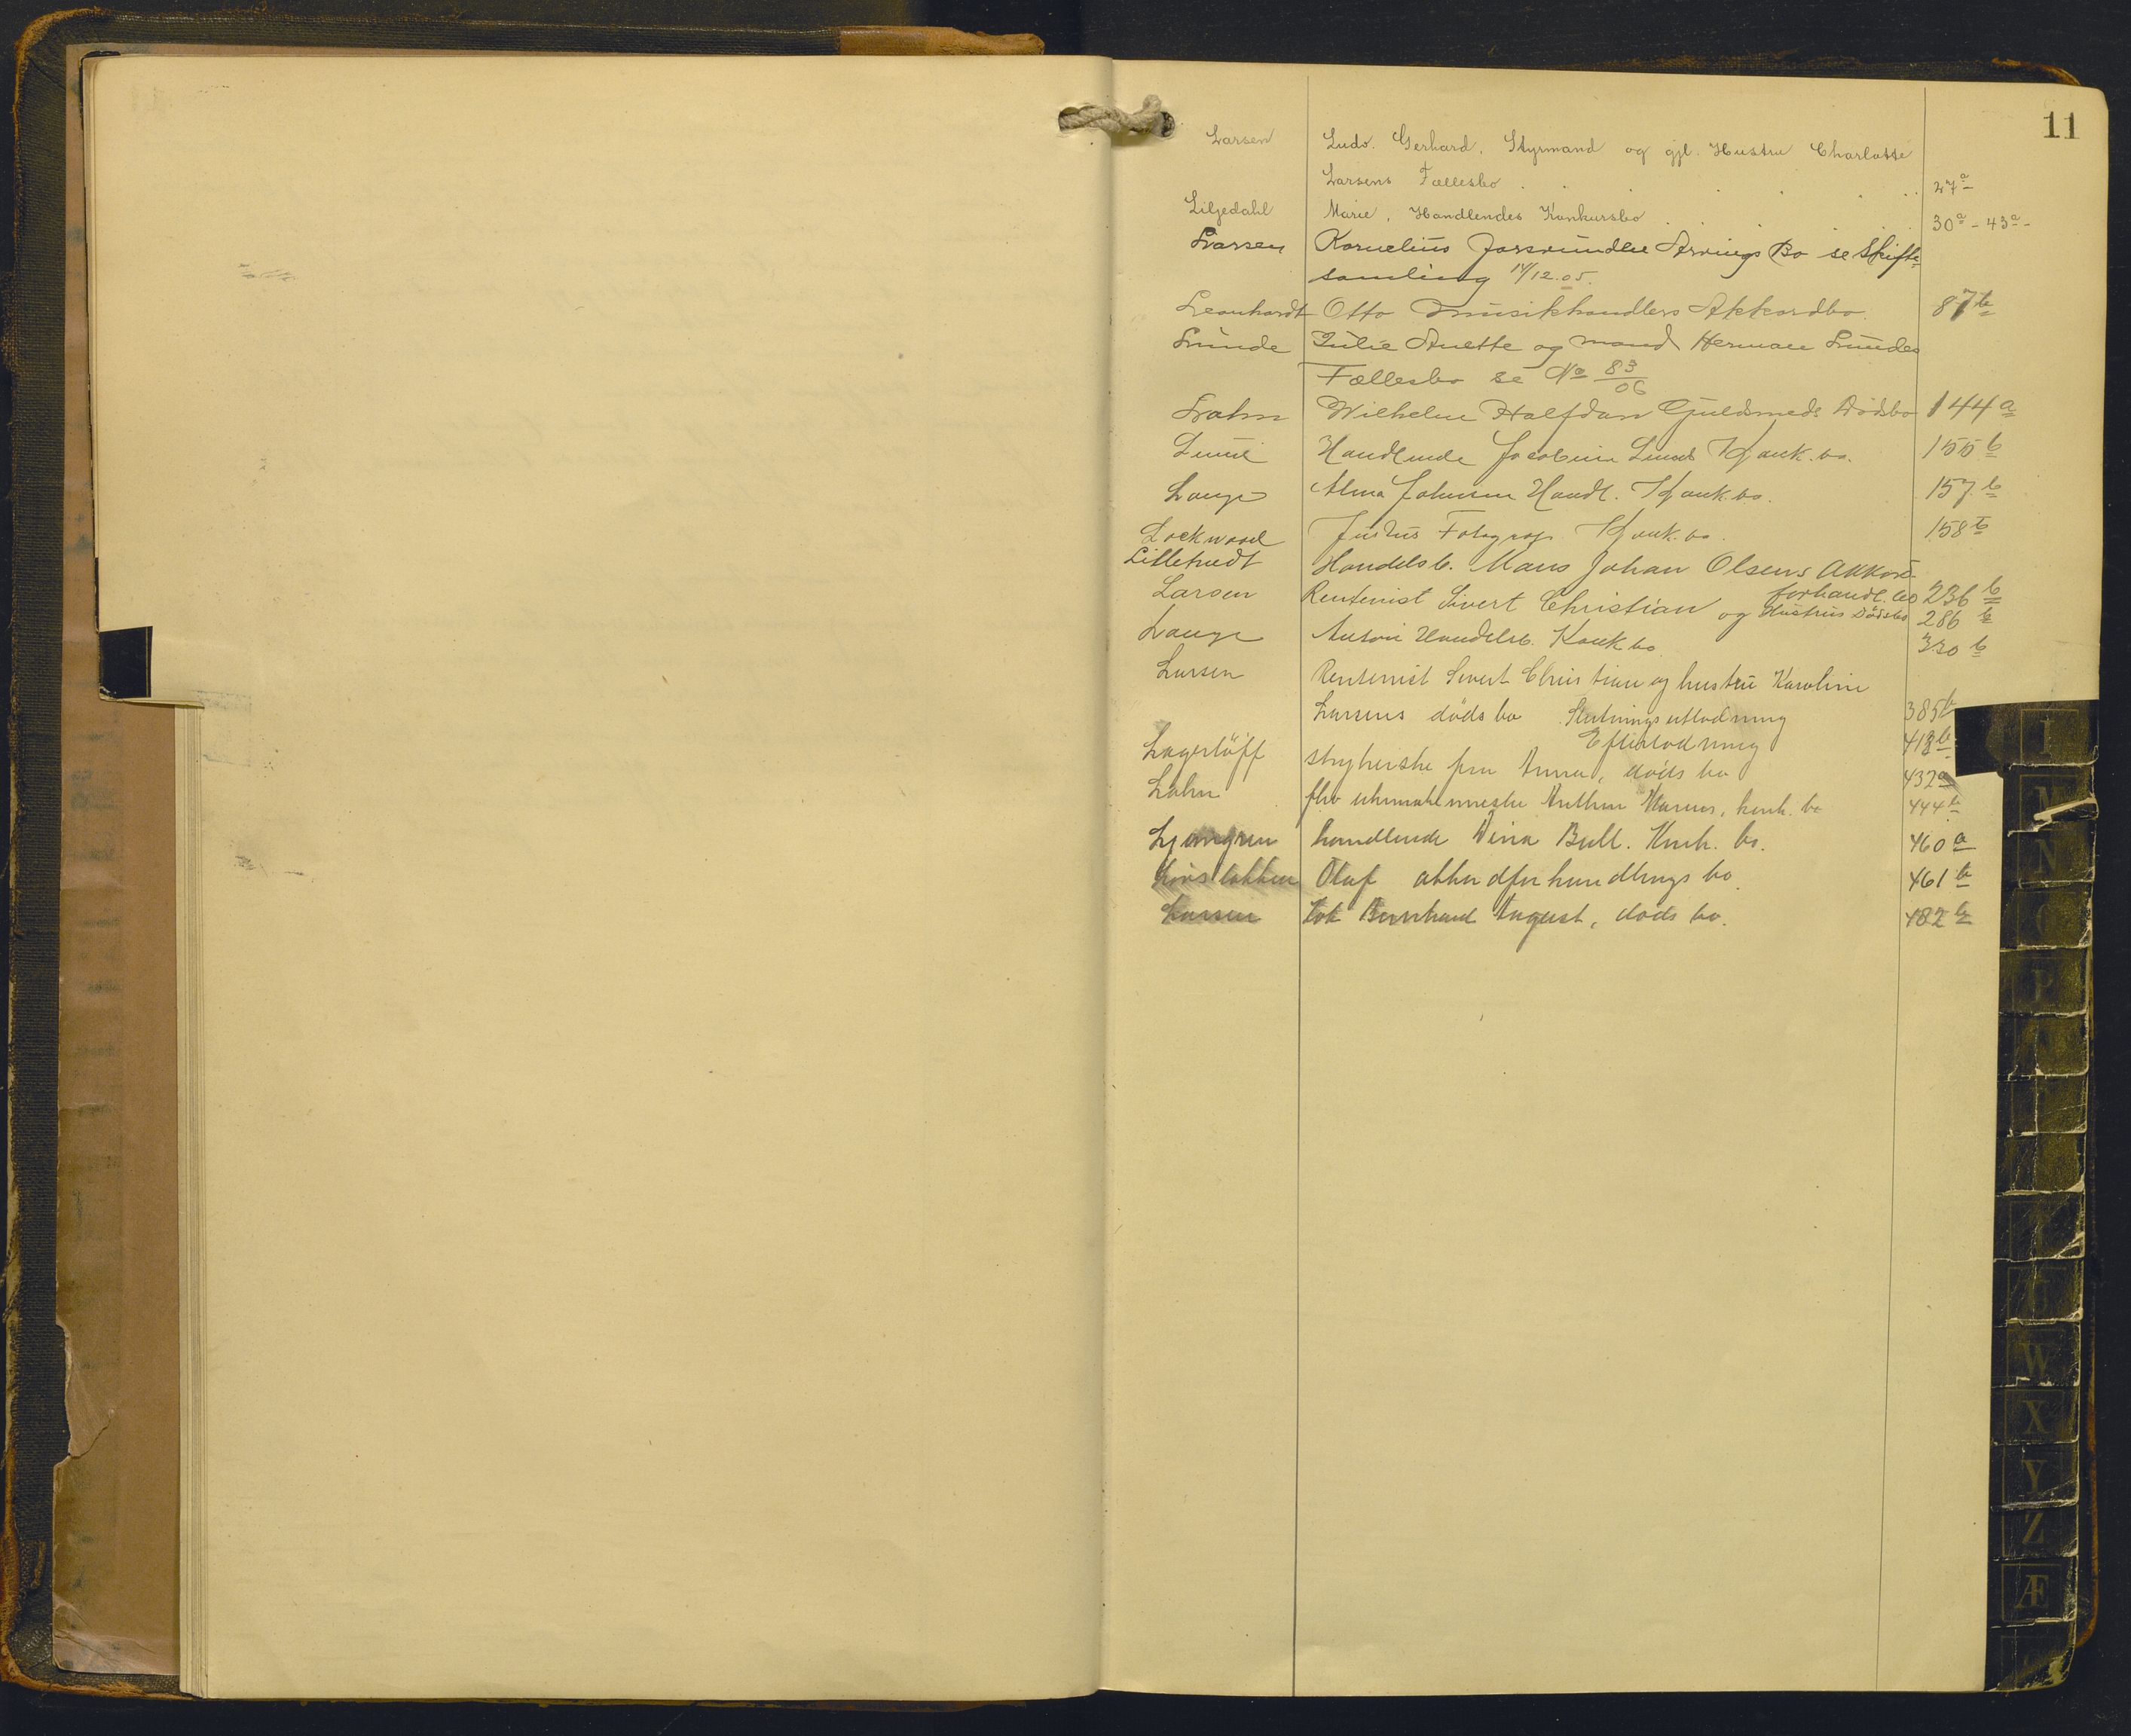 11
Larsen Ludv. Gerhard, Styrmand og gjl. Hustru Charlotte
Larsens Fællesbo 27a
Liljedahl Marie, Handlendes Konkursbo 30a - 43a -
Larsen Kornelius forsvundne Arvings Bo se Skifte-
samling 14/12.05.
Leonhardt Otto Musikhandlers Akkordbo. 87b
Lunde Julie Anette og Mand Herman Lundes
Fællesbo se No 83/06
Lahn Wilhelm Halfdan Guldsmeds Dödsbo 144a
Lund Handlende Jacobine Lunds Konk. bo. 155b
Lange Alma Johnsen Handl. Konk. bo. 157b
Lockwood Justus Fotograf Konk. bo. 158b
Lilletvedt Handelsb. Mans Johan Olsens Akkord-
forhandl. bo 236b
Larsen Rentenist Sivert Christian og Hustrus Dödsbo 286b
Lange Anton Handelsb. Konk bo 330b
Larsen Rentenist Sivert Christian og hustru Karoline
Larsens döds bo Slutningsutlodning 385b
Efterlodning 418b
Lagerlöff strykerske fru Anna, döds bo 437a
Lahn fhv urmakermester Arthur, konk. bo 444b
Ljungren handlende Dina Bull. Konk. bo. 460a
Olaf akkordforhandlings bo 461b
Larsen Kok Bernhard August, döds bo. 482b
I
M
N
O
P
W
X
Y
Z
Æ